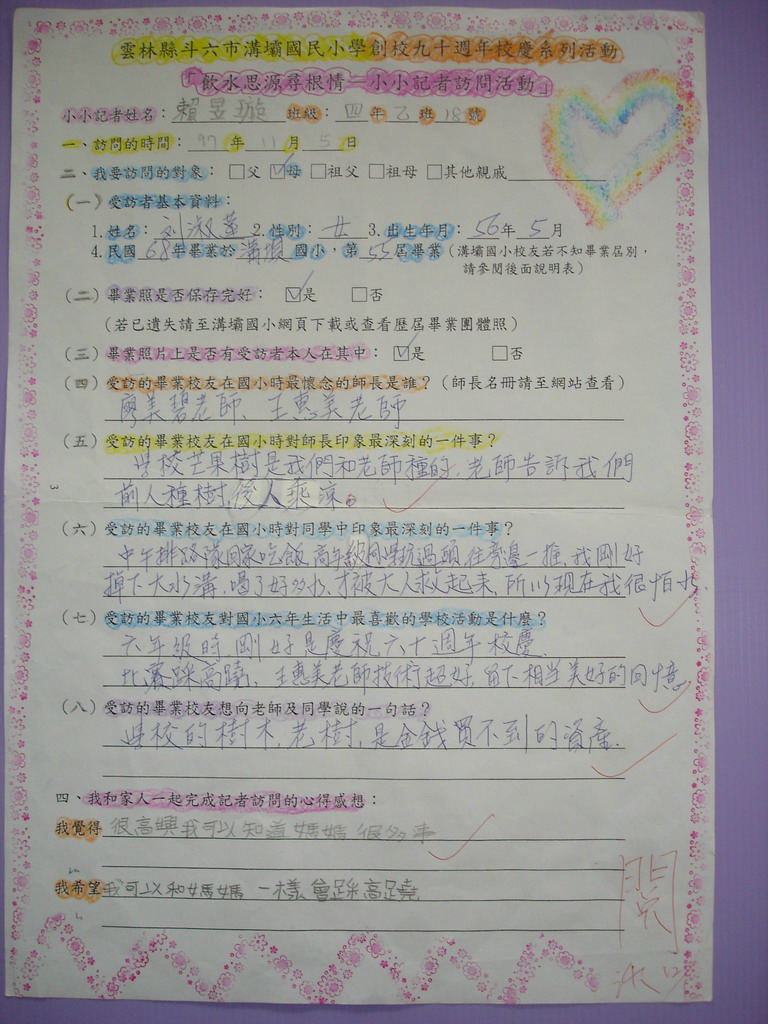 雲林縣斗六市溝壩國民小學創校九十週年校慶系列活動
「飲水思源尋根情＝小小記者訪問活動」
小小記者姓名：賴昱璇 班級：四年乙班18號
一、訪問的時間：97年11月5日
二、我要訪問的對象：□父 ☑母 □祖父 □祖母 □其他親戚
（一）受訪者基本資料：
1.姓名：刘淑 2.性別：女 3.出生年月：56年5月
4.民國68年畢業於溝壩國小，第55屆畢業（溝壩國小校友若不知畢業屆別，
請參閱後面說明表）
（二）畢業照是否保存完好：☑是 □否
（若已遺失請至溝壩國小網頁下載或查看歷屆畢業團體照）
（三）畢業照片上是否有受訪者本人在其中：☑是 □否
（四）受訪的畢業校友在國小時最懷念的師長是誰？（師長名冊請至網站查看）
廖美碧老師、王惠美老師
（五）受訪的畢業校友在國小時對師長印象最深刻的一件事？
學校芒果樹是我們和老師種的，老師告訴我們
前人種樹，後人乘涼。
（六）受訪的畢業校友在國小時對同學中印象最深刻的一件事？
中午排路隊回家吃飯，高年級同學玩過頭，往旁邊一推，我剛好
掉下大水溝，喝了好多水，才被大人救起來，所以現在我很怕水。
（七）受訪的畢業校友對國小六年生活中最喜歡的學校活動是什麼？
六年級時，剛好是慶祝六十週年校慶，
比賽踩高蹺，王惠美老師技術超好，留下相當美好的回憶。
（八）受訪的畢業校友想向老師及同學說的一句話？
學校的樹木，老樹，是金錢買不到的資產．
四、我和家人一起完成記者訪問的心得感想：
我覺得 很高興我可以知道媽媽很多事
我希望 我可以和媽媽一樣會踩高蹺
閱